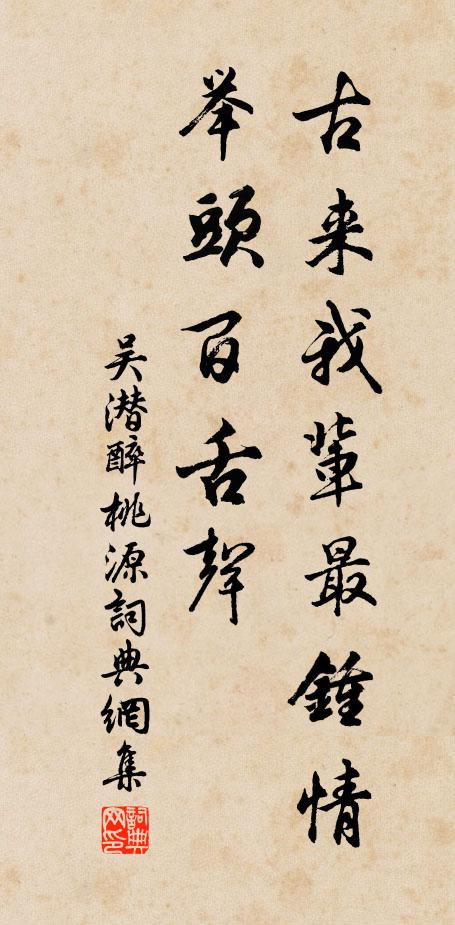 古来我輩最鍾情
举頭百舌聲
吴潜醉桃源詞典網集
詞典网印